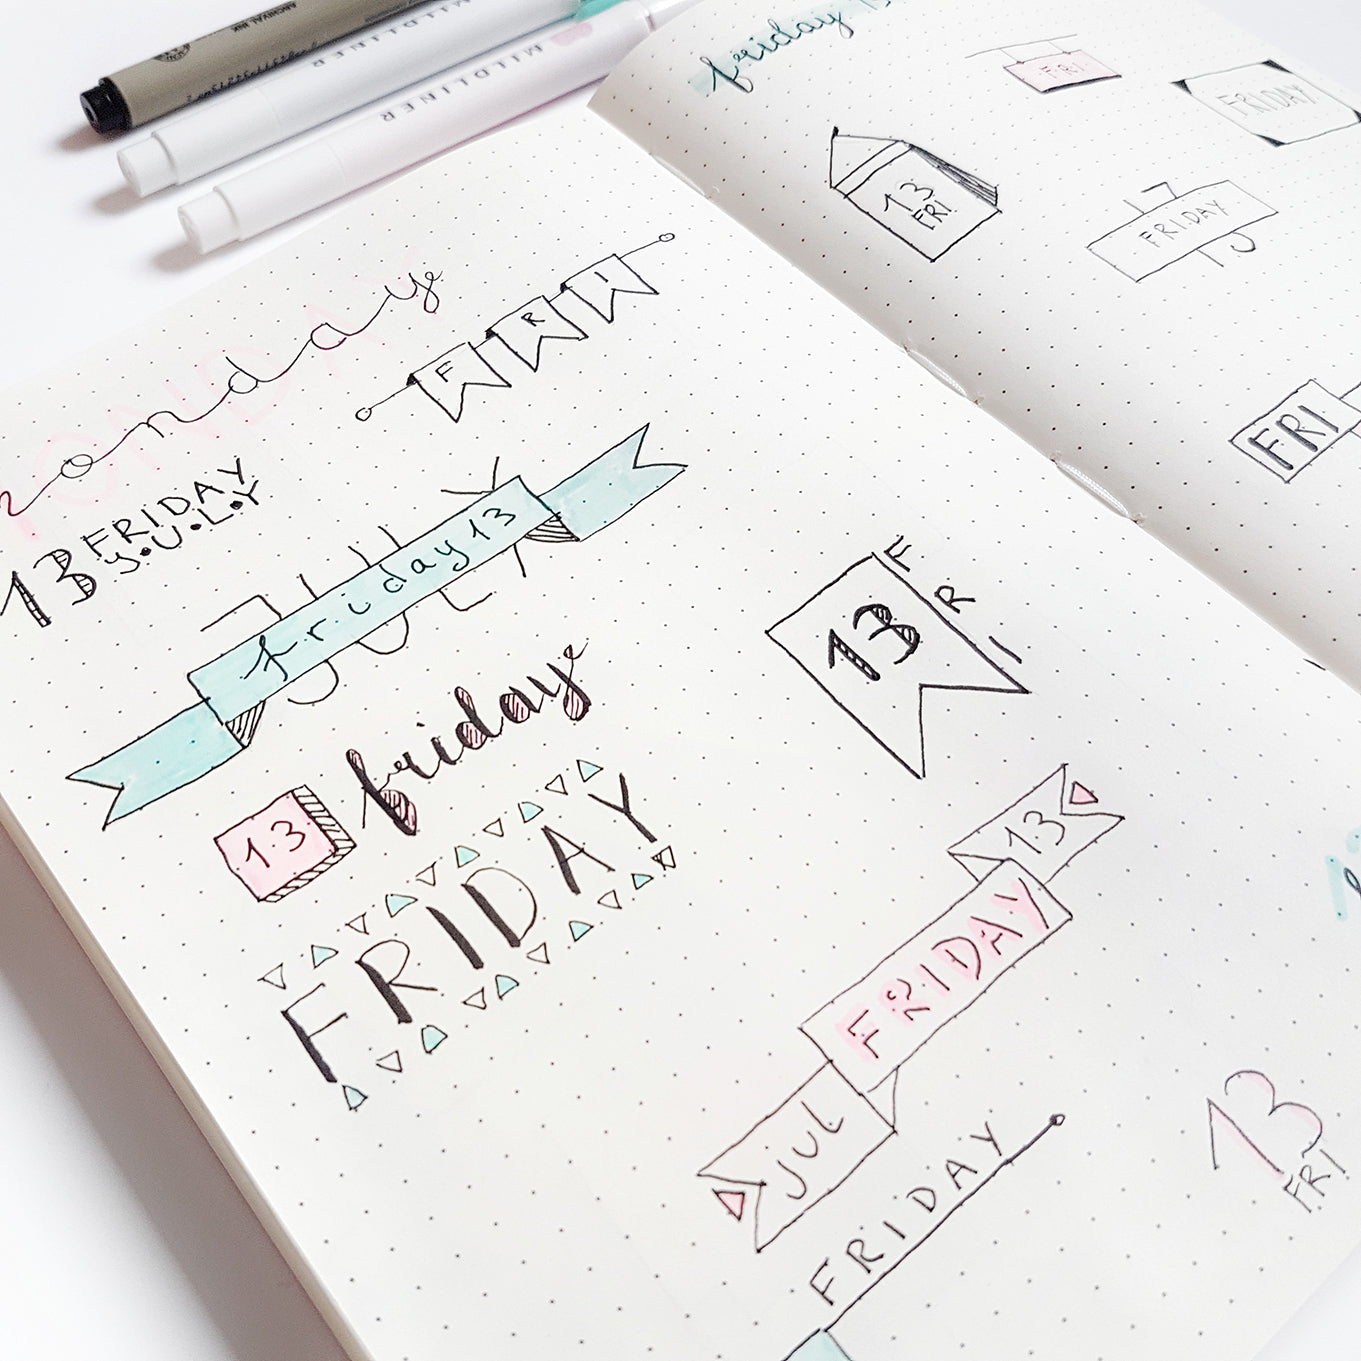 ARCHIVAL INK
MILDLINER
MILDLINER
MILDLINER
monday
MONDAY
13 FRIDAY
J.U.L.Y
F R I
JULY
friday 13
friday
13
FRIDAY
13
F
R
I
13
FRIDAY
JUL
FRIDAY
13
FRI
friday 13
FRI
FRIDAY
13
FRI
FRIDAY
FRI